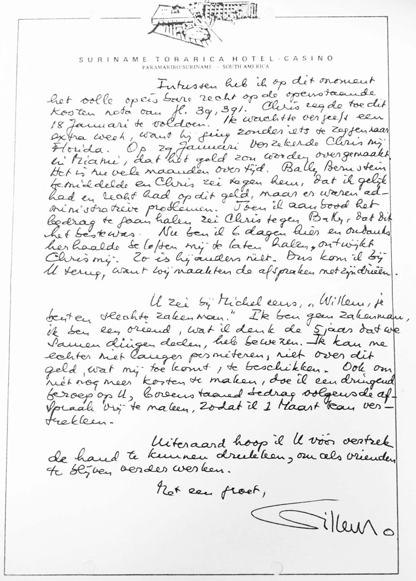 SURINAME TORARICA HOTEL - CASINO
PARAMARIBO/SURINAME — SOUTH AMERICA
Intussen heb ik op dit moment
het volle opeisbare recht op de openstaande
kosten nota van fl. 39,391. Chris zegde toe dit
18 Januari te voldoen. Ik wachtte vergeefs een
extra week, want hij ging zonder iets te zeggen naar
Florida. Op 29 Januari verzekerde Chris mij
in Miami, dat het geld zou worden overgemaakt.
Het is nu vele maanden over tijd. Bally Bernstein
bemiddelde en Chris zei tegen hem, dat ik gelijk
had en recht had op dit geld, maar er waren ad-
ministratieve problemen. Toen ik aanbood het
bedrag te gaan halen zei Chris tegen Bally, dat dit
het beste was. Nu ben ik 6 dagen hier en ondanks
herhaalde beloften mij te laten halen, ontwijkt
Chris mij. Zo is hij anders niet. Dus kom ik bij
U terug, want wij maakten de afspraken met zijn drieën.
U zei bij Michel eens, „Willem, je
bent een slechte zakenman." Ik ben geen zakenman,
ik ben een vriend, wat ik denk de 5 jaar dat we
samen dingen deden, heb bewezen. Ik kan me
echter niet langer permiteren, niet over dit
geld, wat mij toe komt, te beschikken. Ook om
niet nog meer kosten te maken, doe ik een dringend
beroep op U, bovenstaand bedrag volgens de af-
spraak vrij te maken, zodat ik 1 Maart kan ver-
trekken.
Uiteraard hoop ik U vóór vertrek
de hand te kunnen drukken, om als vrienden
te blijven verder werken.
Met een groet,
Willem